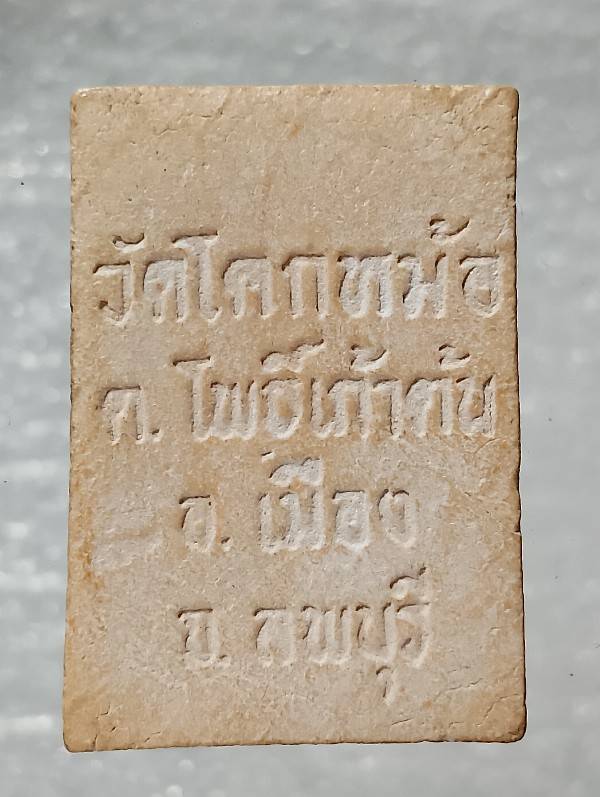 วัดโคกหม้อ
ต. โพธิ์เก้าต้น
อ. เมือง
จ. ลพบุรี